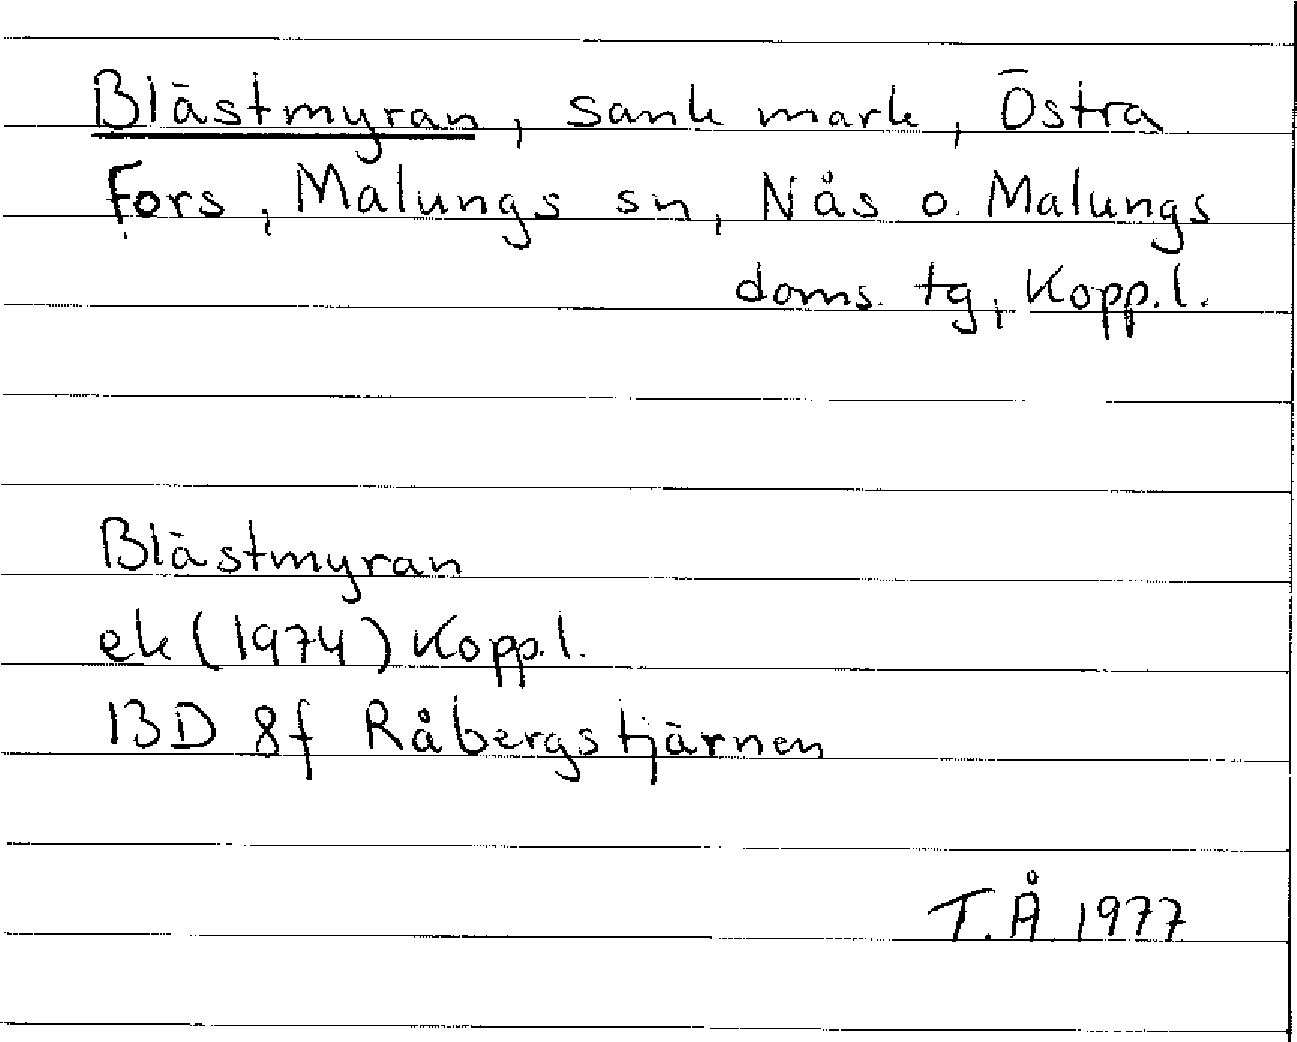 Blästmyran, sank mark, Östra
Fors, Malungs sn, Nås o. Malungs
doms. tg, Kopp.l.
Blästmyran
ek (1974) Kopp.l.
13D 8f Råbergstjärnen
T.Å 1977